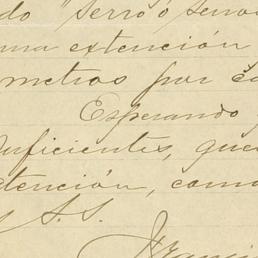 do "Serro ó
una extención
metros por
Esperando
suficientes, que
atención, como
S. S.